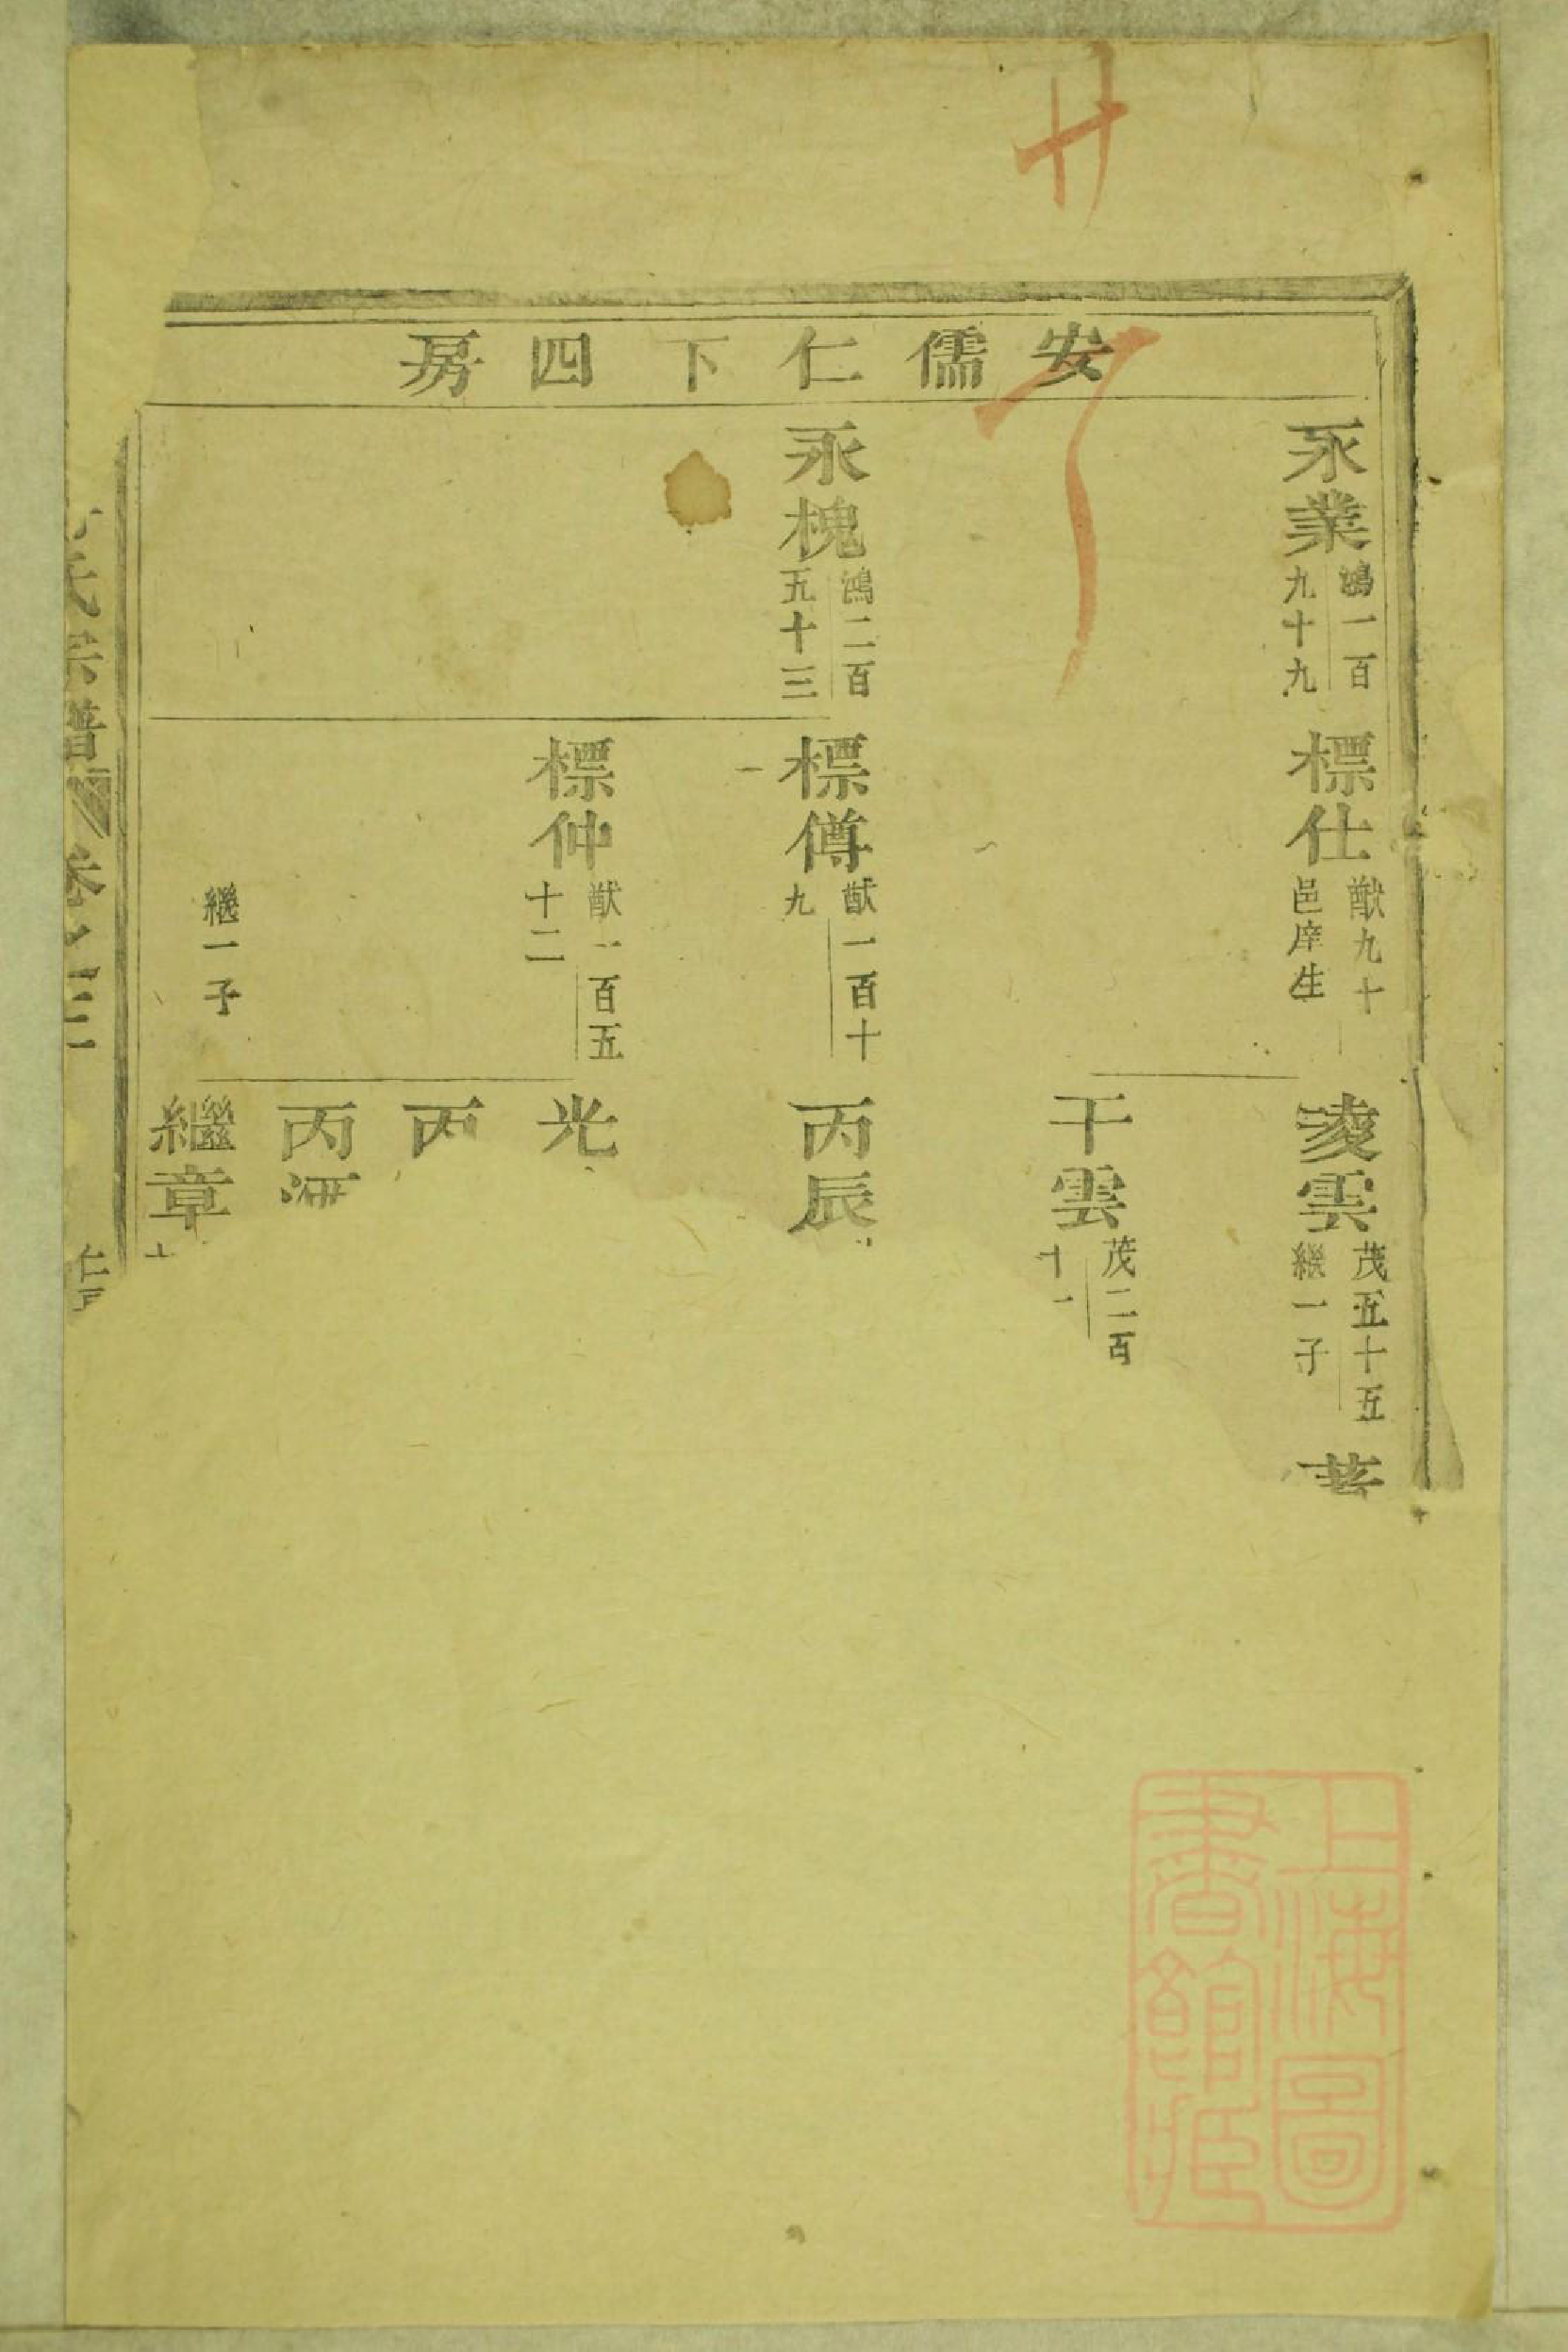 廿
安儒仁下四房
永業 鴻一百九十九
標仕 猷九十 邑庠生
凌雲 茂五十五 繼一子
干雲 茂二百十一
永槐 鴻二百五十三
標傅 猷一百十九
丙辰
標仲 猷一百五十二
光
丙
丙
繼一子
繼章
氏宗譜 卷之三
上海圖書館藏